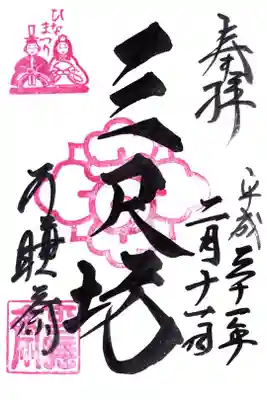 奉拝
平成三十一年
二月十一日
三尺坊
可睡斎
ひなまつり